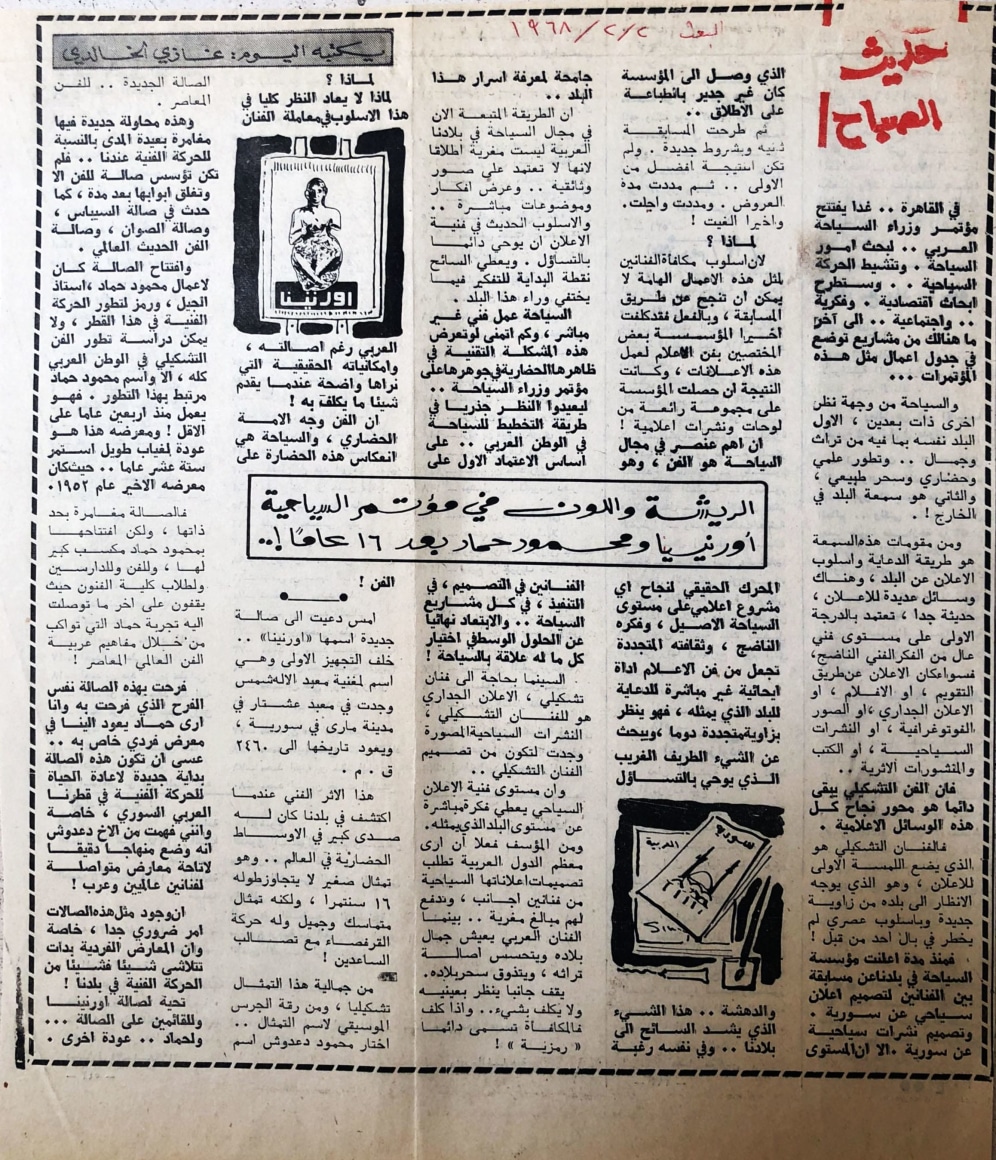 البعث ١٩٦٨/٢/٢
حديث
الصباح
يكتبه اليوم: غازي الخالدي
في القاهرة .. غدا يفتتح
مؤتمر وزراء السياحة
العربي .. لبحث امور
السياحة . وتنشيط الحركة
السياحية .. وستطرح
ابحاث اقتصادية . وفكرية
.. واجتماعية .. الى آخر
ما هنالك من مشاريع توضع
في جدول اعمال مثل هذه
المؤتمرات ...
والسياحة من وجهة نظر
اخرى ذات بعدين ، الاول
البلد نفسه بما فيه من تراث
وجمال .. وتطور علمي
وحضاري وسحر طبيعي ،
والثاني هو سمعة البلد في
الخارج ! .
ومن مقومات هذه السمعة
هو طريقة الدعاية واسلوب
الاعلان عن البلد ، وهناك
وسائل عديدة للاعلان ،
حديثة جدا ، تعتمد بالدرجة
الاولى على مستوى فني
عال من الفكر الفني الناضج،
فسواءكان الاعلان عن طريق
التقويم ، او الافلام ، او
الاعلان الجداري ،او الصور
الفوتوغرافية ، او النشرات
السياحية ، او الكتب
والمنشورات الاثرية ..
فان الفن التشكيلي يبقى
دائما هو محور نجاح كل
هذه الوسائل الاعلامية .
فالفنان التشكيلي هو
الذي يضع اللمسة الاولى
للاعلان ، وهو الذي يوجه
الانظار الى بلده من زاوية
جديدة وباسلوب عصري لم
يخطر في بال احد من قبل !
فمنذ مدة اعلنت مؤسسة
السياحة في بلادنا عن مسابقة
بين الفنانين لتصميم اعلان
سياحي عن سورية .
وتصميم نشرات سياحية
عن سورية .الا ان المستوى
الذي وصل الى المؤسسة
كان غير جدير بانطباعة
على الاطلاق ..
ثم طرحت المسابقة
ثانية وبشروط جديدة . ولم
تكن النتيجة افضل من
الاولى .. ثم مددت مدة
العروض . ومددت واجلت.
واخيرا الغيت !
لماذا ؟
لان اسلوب مكافأة الفنانين
لمثل هذه الاعمال الهامة لا
يمكن ان تنجح عن طريق
المسابقة ، وبالفعل فقد كلفت
اخيرا المؤسسة بعض
المختصين بفن الاعلام لعمل
هذه الاعلانات ، وكانت
النتيجة ان حصلت المؤسسة
على مجموعة رائعة من
لوحات ونشرات اعلامية !
ان اهم عنصر في مجال
السياحة هو الفن ، وهو
الريشة واللون في مؤتمر السياحية
أورنينا ومحمود حماد بعد ١٦ عاماً !..
المحرك الحقيقي لنجاح اي
مشروع اعلامي على مستوى
السياحة الاصيل ، وفكره
الناضج ، وثقافته المتجددة
تجعل من فن الاعلام اداة
ايحائية غير مباشرة للدعاية
للبلد الذي يمثله ، فهو ينظر
بزاوية متجددة دوما ، ويبحث
عن الشيء الطريف الغريب
الذي يوحي بالتساؤل
سورية
العربية
والدهشة .. هذا الشيء
الذي يشد السائح الى
بلادنا .. وفي نفسه رغبة
جامحة لمعرفة اسرار هذا
البلد ..
ان الطريقة المتبعة الان
في مجال السياحة في بلادنا
العربية ليست مغرية اطلاقا
لانها لا تعتمد على صور
وثائقية .. وعرض افكار
وموضوعات مباشرة ..
والاسلوب الحديث في فنية
الاعلان ان يوحي دائما
بالتساؤل . ويعطي السائح
نقطة البداية للتفكير فيما
يختفي وراء هذا البلد .
السياحة عمل فني غير
مباشر ، وكم اتمنى لو تعرض
هذه المشكلة التقنية في
ظاهرها الحضارية في جوهرها على
مؤتمر وزراء السياحة ..
ليعيدوا النظر جذريا في
طريقة التخطيط للسياحة
في الوطن العربي .. على
اساس الاعتماد الاول على
الفنانين في التصميم ، في
التنفيذ ، في كل مشاريع
السياحة .. والابتعاد نهائيا
عن الحلول الوسط في اختيار
كل ما له علاقة بالسياحة !
السينما بحاجة الى فنان
تشكيلي ، الاعلان الجداري
هو للفنان التشكيلي ،
النشرات السياحية المصورة
وجدت لتكون من تصميم
الفنان التشكيلي ..
وان مستوى فنية الاعلان
السياحي يعطي فكرة مباشرة
عن مستوى البلد الذي يمثله.
ومن المؤسف فعلا أن ارى
معظم الدول العربية تطلب
تصميمات اعلاناتها السياحية
من فنانين اجانب ، وتدفع
لهم مبالغ مغرية .. بينما
الفنان العربي يعيش جمال
بلاده ويتحسس اصالة
تراثه ، ويتذوق سحر بلاده.
يقف جانبا ينظر بعينيه
ولا يكلف بشيء.. واذا كلف
فالمكافأة تسمى دائما
« رمزية » !
لماذا ؟
لماذا لا يعاد النظر كليا في
هذا الاسلوب في معاملة الفنان
اورنينا
العربي رغم اصالته ،
وامكانياته الحقيقية التي
نراها واضحة عندما يقدم
شيئا ما يكلف به !
ان الفن وجه الامة
الحضاري ، والسياحة هي
انعكاس هذه الحضارة على
الفن !
امس دعيت الى صالة
جديدة اسمها «اورنينا» ..
خلف التجهيز الاولى وهي
اسم لمغنية معبد الاله شمس
وجدت في معبد عشتار في
مدينة ماري في سورية ،
ويعود تاريخها الى ٢٤٦٠
ق . م .
هذا الاثر الفني عندما
اكتشف في بلدنا كان له
صدى كبير في الاوساط
الحضارية في العالم .. وهو
تمثال صغير لا يتجاوز طوله
١٦ سنتمرا ، ولكنه تمثال
متماسك وجميل وله حركة
القرفصاء مع تصالب
الساعدين !
من جمالية هذا التمثال
تشكيليا ، ومن رقة الجرس
الموسيقي لاسم التمثال ..
اختار محمود دعدوش اسم
الصالة الجديدة .. للفن
المعاصر .
وهذه محاولة جديدة فيها
مغامرة بعيدة المدى بالنسبة
للحركة الفنية عندنا .. فلم
تكن تؤسس صالة للفن الا
وتغلق ابوابها بعد مدة ، كما
حدث في صالة السيباس ،
وصالة الصوان ، وصالة
الفن الحديث العالمي .
وافتتاح الصالة كان
لاعمال محمود حماد ،استاذ
الجيل ، ورمز لتطور الحركة
الفنية في هذا القطر ، ولا
يمكن دراسة تطور الفن
التشكيلي في الوطن العربي
كله ، الا واسم محمود حماد
مرتبط بهذا التطور . فهو
يعمل منذ اربعين عاما على
الاقل ! ومعرضه هذا هو
عودة لغياب طويل استمر
ستة عشر عاما .. حيث كان
معرضه الاخير عام ١٩٥٢.
فالصالة مغامرة بحد
ذاتها ، ولكن افتتاحها
بمحمود حماد مكسب كبير
لها ، وللفن وللدارسين
ولطلاب كلية الفنون حيث
يقفون على اخر ما توصلت
اليه تجربة حماد التي تواكب
من خلال مفاهيم عربية
الفن العالمي المعاصر !
فرحت بهذه الصالة نفس
الفرح الذي فرحت به وانا
ارى حماد يعود الينا في
معرض فردي خاص به ..
عسى ان تكون هذه الصالة
بداية جديدة لاعادة الحياة
للحركة الفنية في قطرنا
العربي السوري ، خاصة
وانني فهمت من الاخ دعدوش
انه وضع منهاجا دقيقا
لاتاحة معارض متواصلة
لفنانين عالميين وعرب !
ان وجود مثل هذه الصالات
امر ضروري جدا ، خاصة
وان المعارض الفردية بدات
تتلاشى شيئا فشيئا من
الحركة الفنية في بلدنا !
تحية لصالة اورنينا
وللقائمين على الصالة ...
ولحماد .. عودة اخرى .